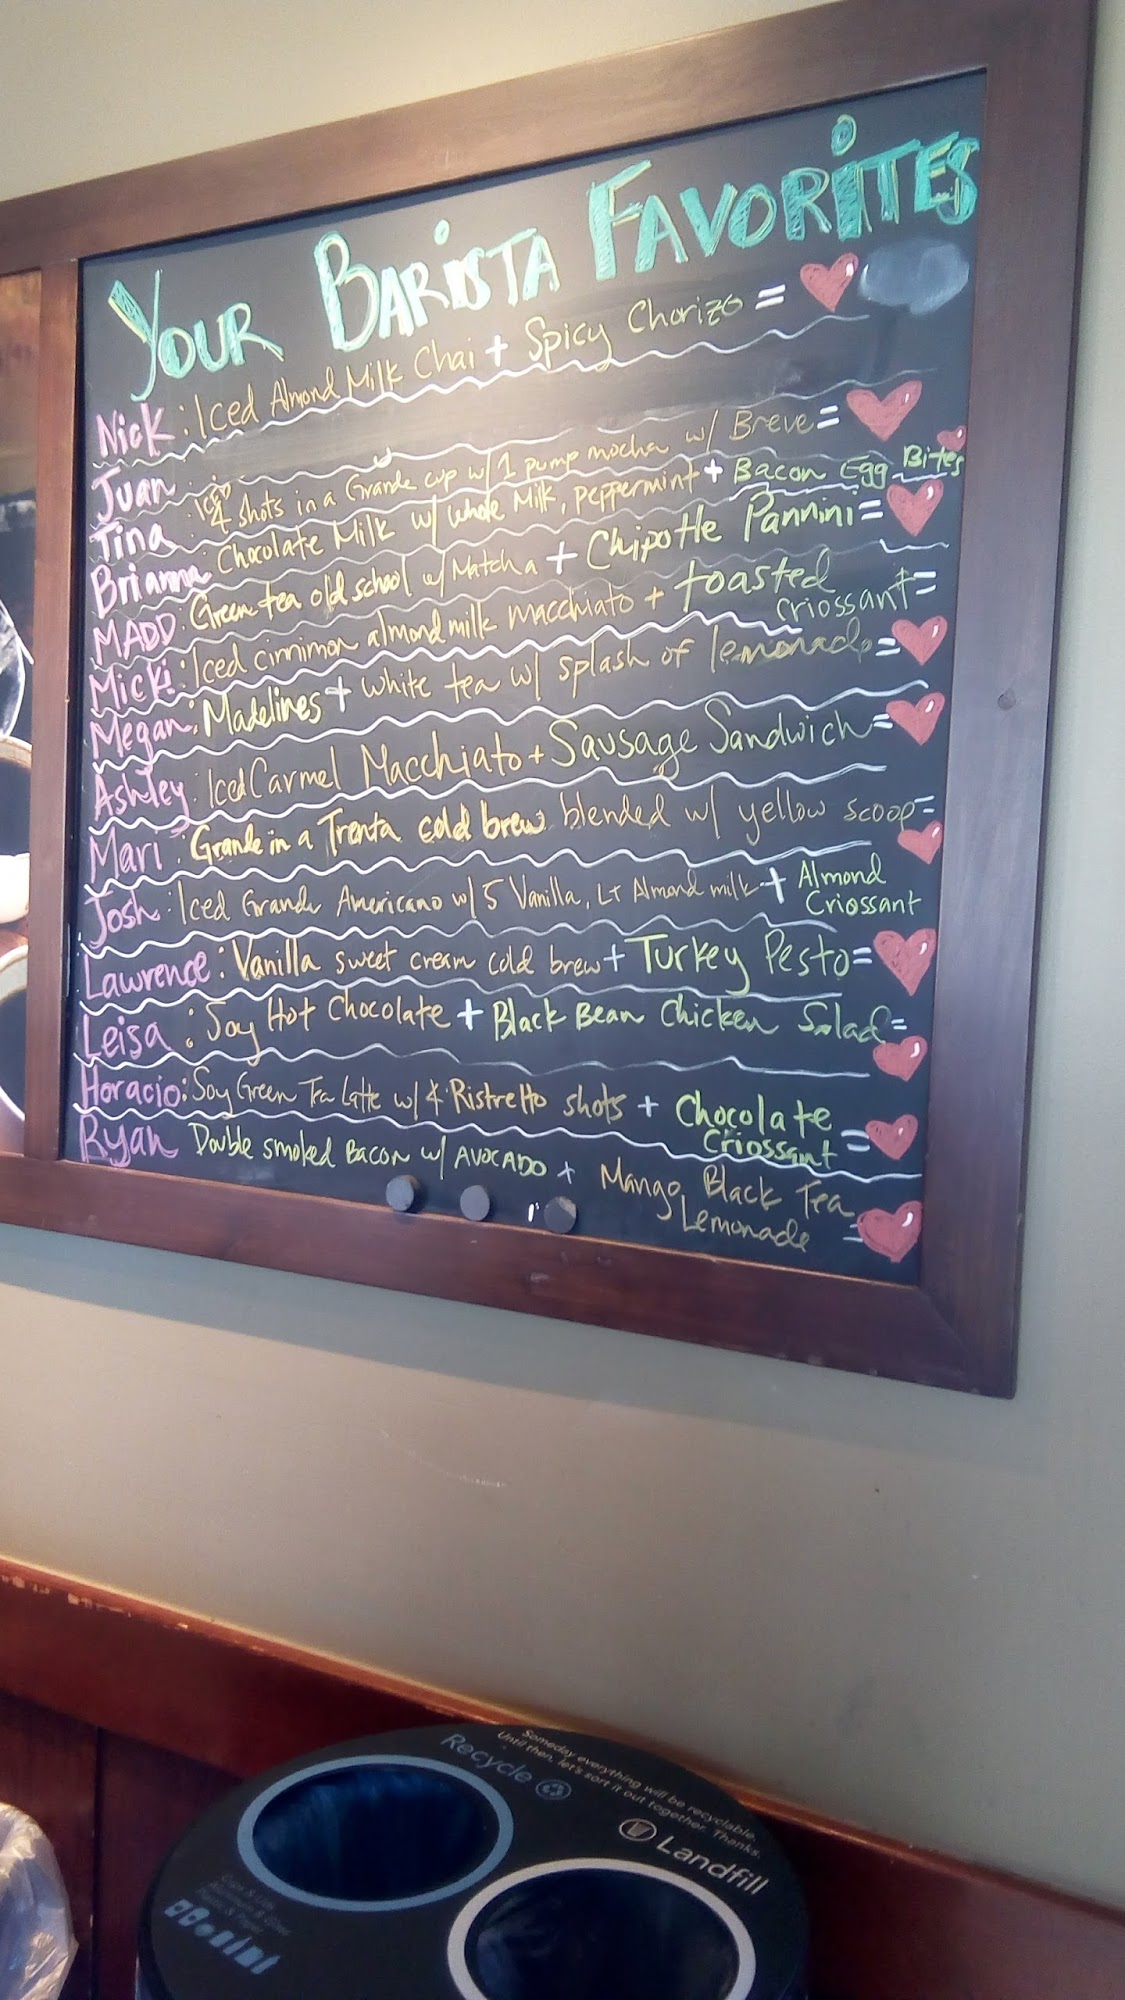 YOUR BARISTA FAVORITES
Nick: Iced Almond Milk Chai + Spicy Chorizo =
Juan
Tina: 4 shots in a Grande cup w/ 1 pump mocha w/ Breve =
Brianna: Chocolate Milk w/ whole Milk, peppermint + Bacon Egg Bites
MADD: Green tea old school w/ Matcha + Chipotle Pannini =
Micki: Iced cinnimon almond milk macchiato + toasted criossant =
Megan: Madelines + white tea w/ splash of lemonade =
Ashley: Iced Carmel Macchiato + Sausage Sandwich =
Mari: Grande in a Trenta cold brew blended w/ yellow scoop =
Josh: Iced Grande Americano w/ 5 Vanilla, Lt Almond milk + Almond Criossant
Lawrence: Vanilla sweet cream cold brew + Turkey Pesto =
Leisa: Soy Hot Chocolate + Black Bean Chicken Salad =
Horacio: Soy Green Tea Latte w/ 4 Ristretto shots + Chocolate Criossant =
Ryan Double smoked Bacon w/ AVOCADO + Mango Black Tea Lemonade =
Someday everything will be recyclable.
Until then, let's sort it out together. Thanks.
Recycle
Landfill